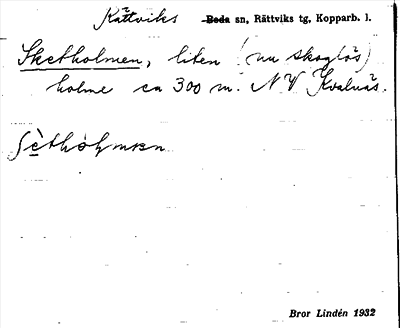 Rättviks Boda sn, Rättviks tg, Kopparb. l.
Sketholmen, liten (nu skoglös)
holme ca 300 m. NV Kvalnäs.
Bror Lindén 1932